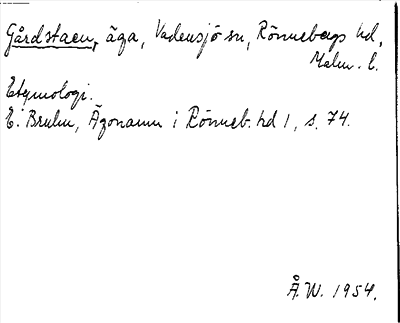 Gårdstaen, äga, Vadensjö sn, Rönnebergs hd,
Malm. l.
Etymologi.
E. Bruhn, Ägonamn i Rönneb. hd 1, s. 74.
Å.W. 1954.